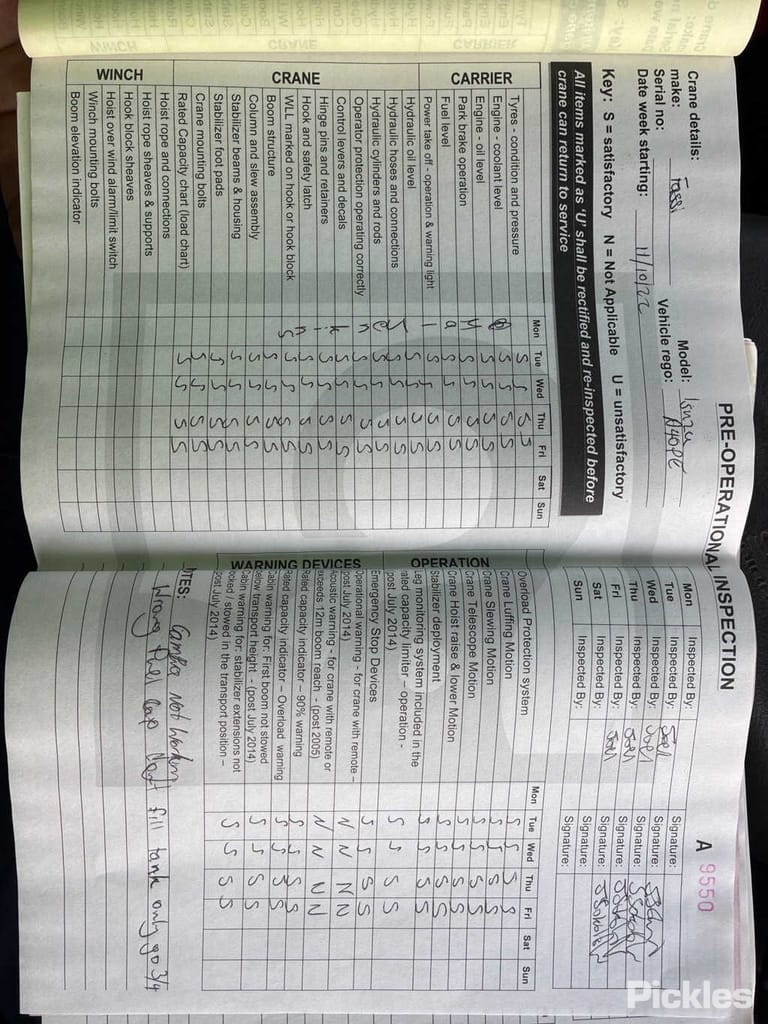 PRE-OPERATIONAL INSPECTION
A 9550
Crane details:
make: Fassi
Model: Isuzu
Serial no:
Vehicle rego: A40PE
Date week starting: 11/10/22
Key: S = satisfactory N = Not Applicable U = unsatisfactory
All items marked as 'U' shall be rectified and re-inspected before
crane can return to service
Mon Inspected By: Signature:
Tue Inspected By: Joel Signature:
Wed Inspected By: Joel Signature:
Thu Inspected By: Joel Signature:
Fri Inspected By: Joel Signature:
Sat Inspected By: Signature:
Sun Inspected By: Signature:
Mon Tue Wed Thu Fri Sat Sun
CARRIER
Tyres - condition and pressure S S S S
Engine - coolant level S S S S
Engine - oil level S S S S
Park brake operation S S S S
Fuel level S S S S
Power take off - operation & warning light S S S S
CRANE
Hydraulic oil level S S S S
Hydraulic hoses and connections S S S S
Hydraulic cylinders and rods S S S S
Operator protection operating correctly S S S S
Control levers and decals S S S S
Hinge pins and retainers S S S S
Hook and safety latch S S S S
WLL marked on hook or hook block S S S S
Boom structure S S S S
Column and slew assembly S S S S
Stabilizer beams & housing S S S S
Stabilizer foot pads S S S S
Crane mounting bolts S S S S
Rated Capacity chart (load chart) S S S S
WINCH
Hoist rope and connections
Hoist rope sheaves & supports
Hook block sheaves
Hoist over wind alarm/limit switch
Winch mounting bolts
Boom elevation indicator
Mon Tue Wed Thu Fri Sat Sun
OPERATION
Overload Protection system S S S S
Crane Luffing Motion S S S S
Crane Slewing Motion S S S S
Crane Telescope Motion S S S S
Crane Hoist raise & lower Motion S S S S
Stabilizer deployment S S S S
Leg monitoring system included in the
rated capacity limiter - operation -
(post July 2014) S S S S
WARNING DEVICES
Emergency Stop Devices S S S S
Operational warning - for crane with remote -
(post July 2014) N N N N
Acoustic warning - for crane with remote or
exceeds 12m boom reach - (post 2005) N N N N
Rated capacity indicator – 90% warning S S S S
Rated capacity indicator – Overload warning S S S S
Cabin warning for: First boom not stowed
below transport height - (post July 2014) S S S S
Cabin warning for: stabilizer extensions not
locked / stowed in the transport position –
(post July 2014) S S S S
NOTES: Not Working
Wrong fuel cap fill tank only go 3/4
Pickles